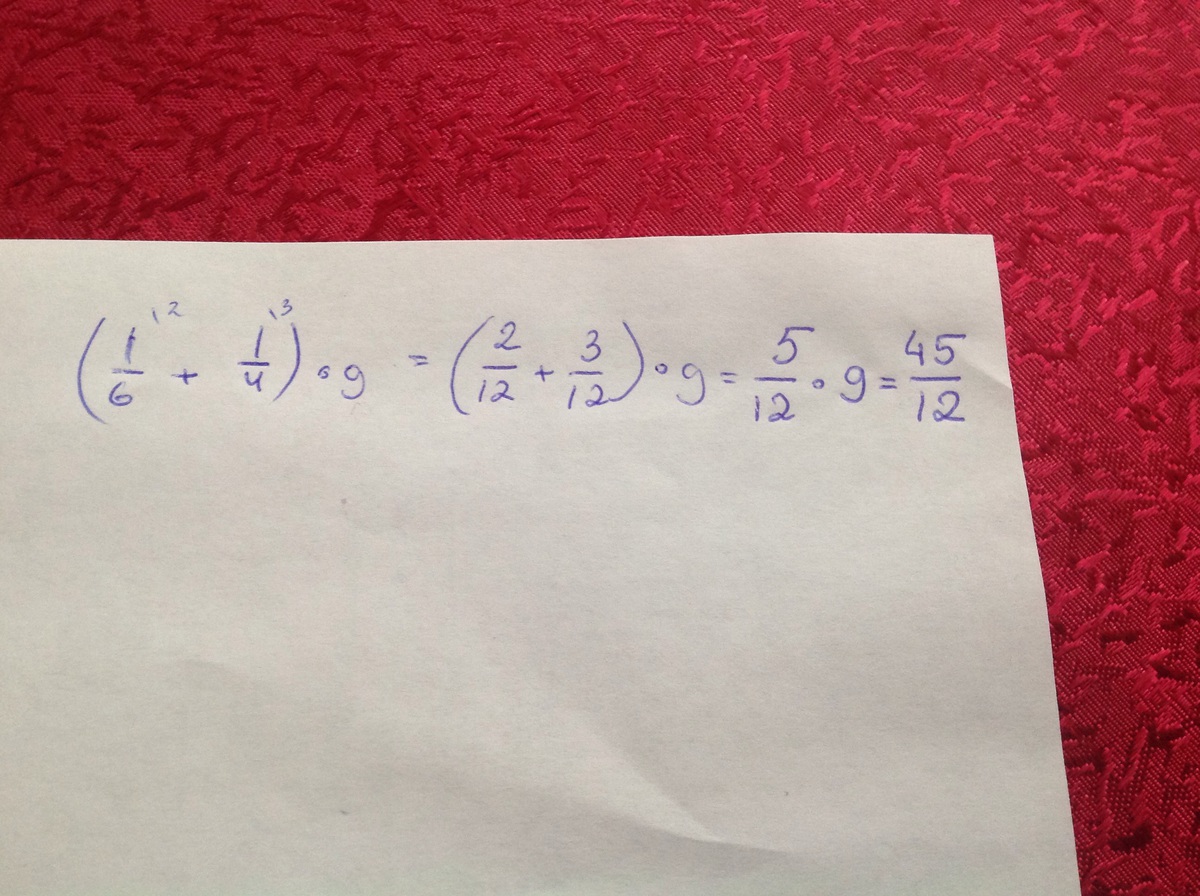 (1/6 '2 + 1/4 '3) • 9 = (2/12 + 3/12) • 9 = 5/12 • 9 = 45/12